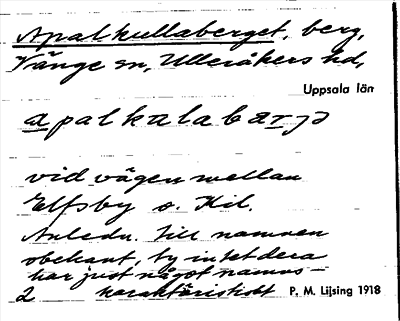 Apalkullaberget, berg,
Vänge sn, Ulleråkers hd,
Uppsala län
apalkulabærjə
vid vägen mellan
Elfsby o. Kil.
Anledn. till namnen
obekant, ty intetdera
har just något namns-
2 karaktäristiskt P. M. Lijsing 1918